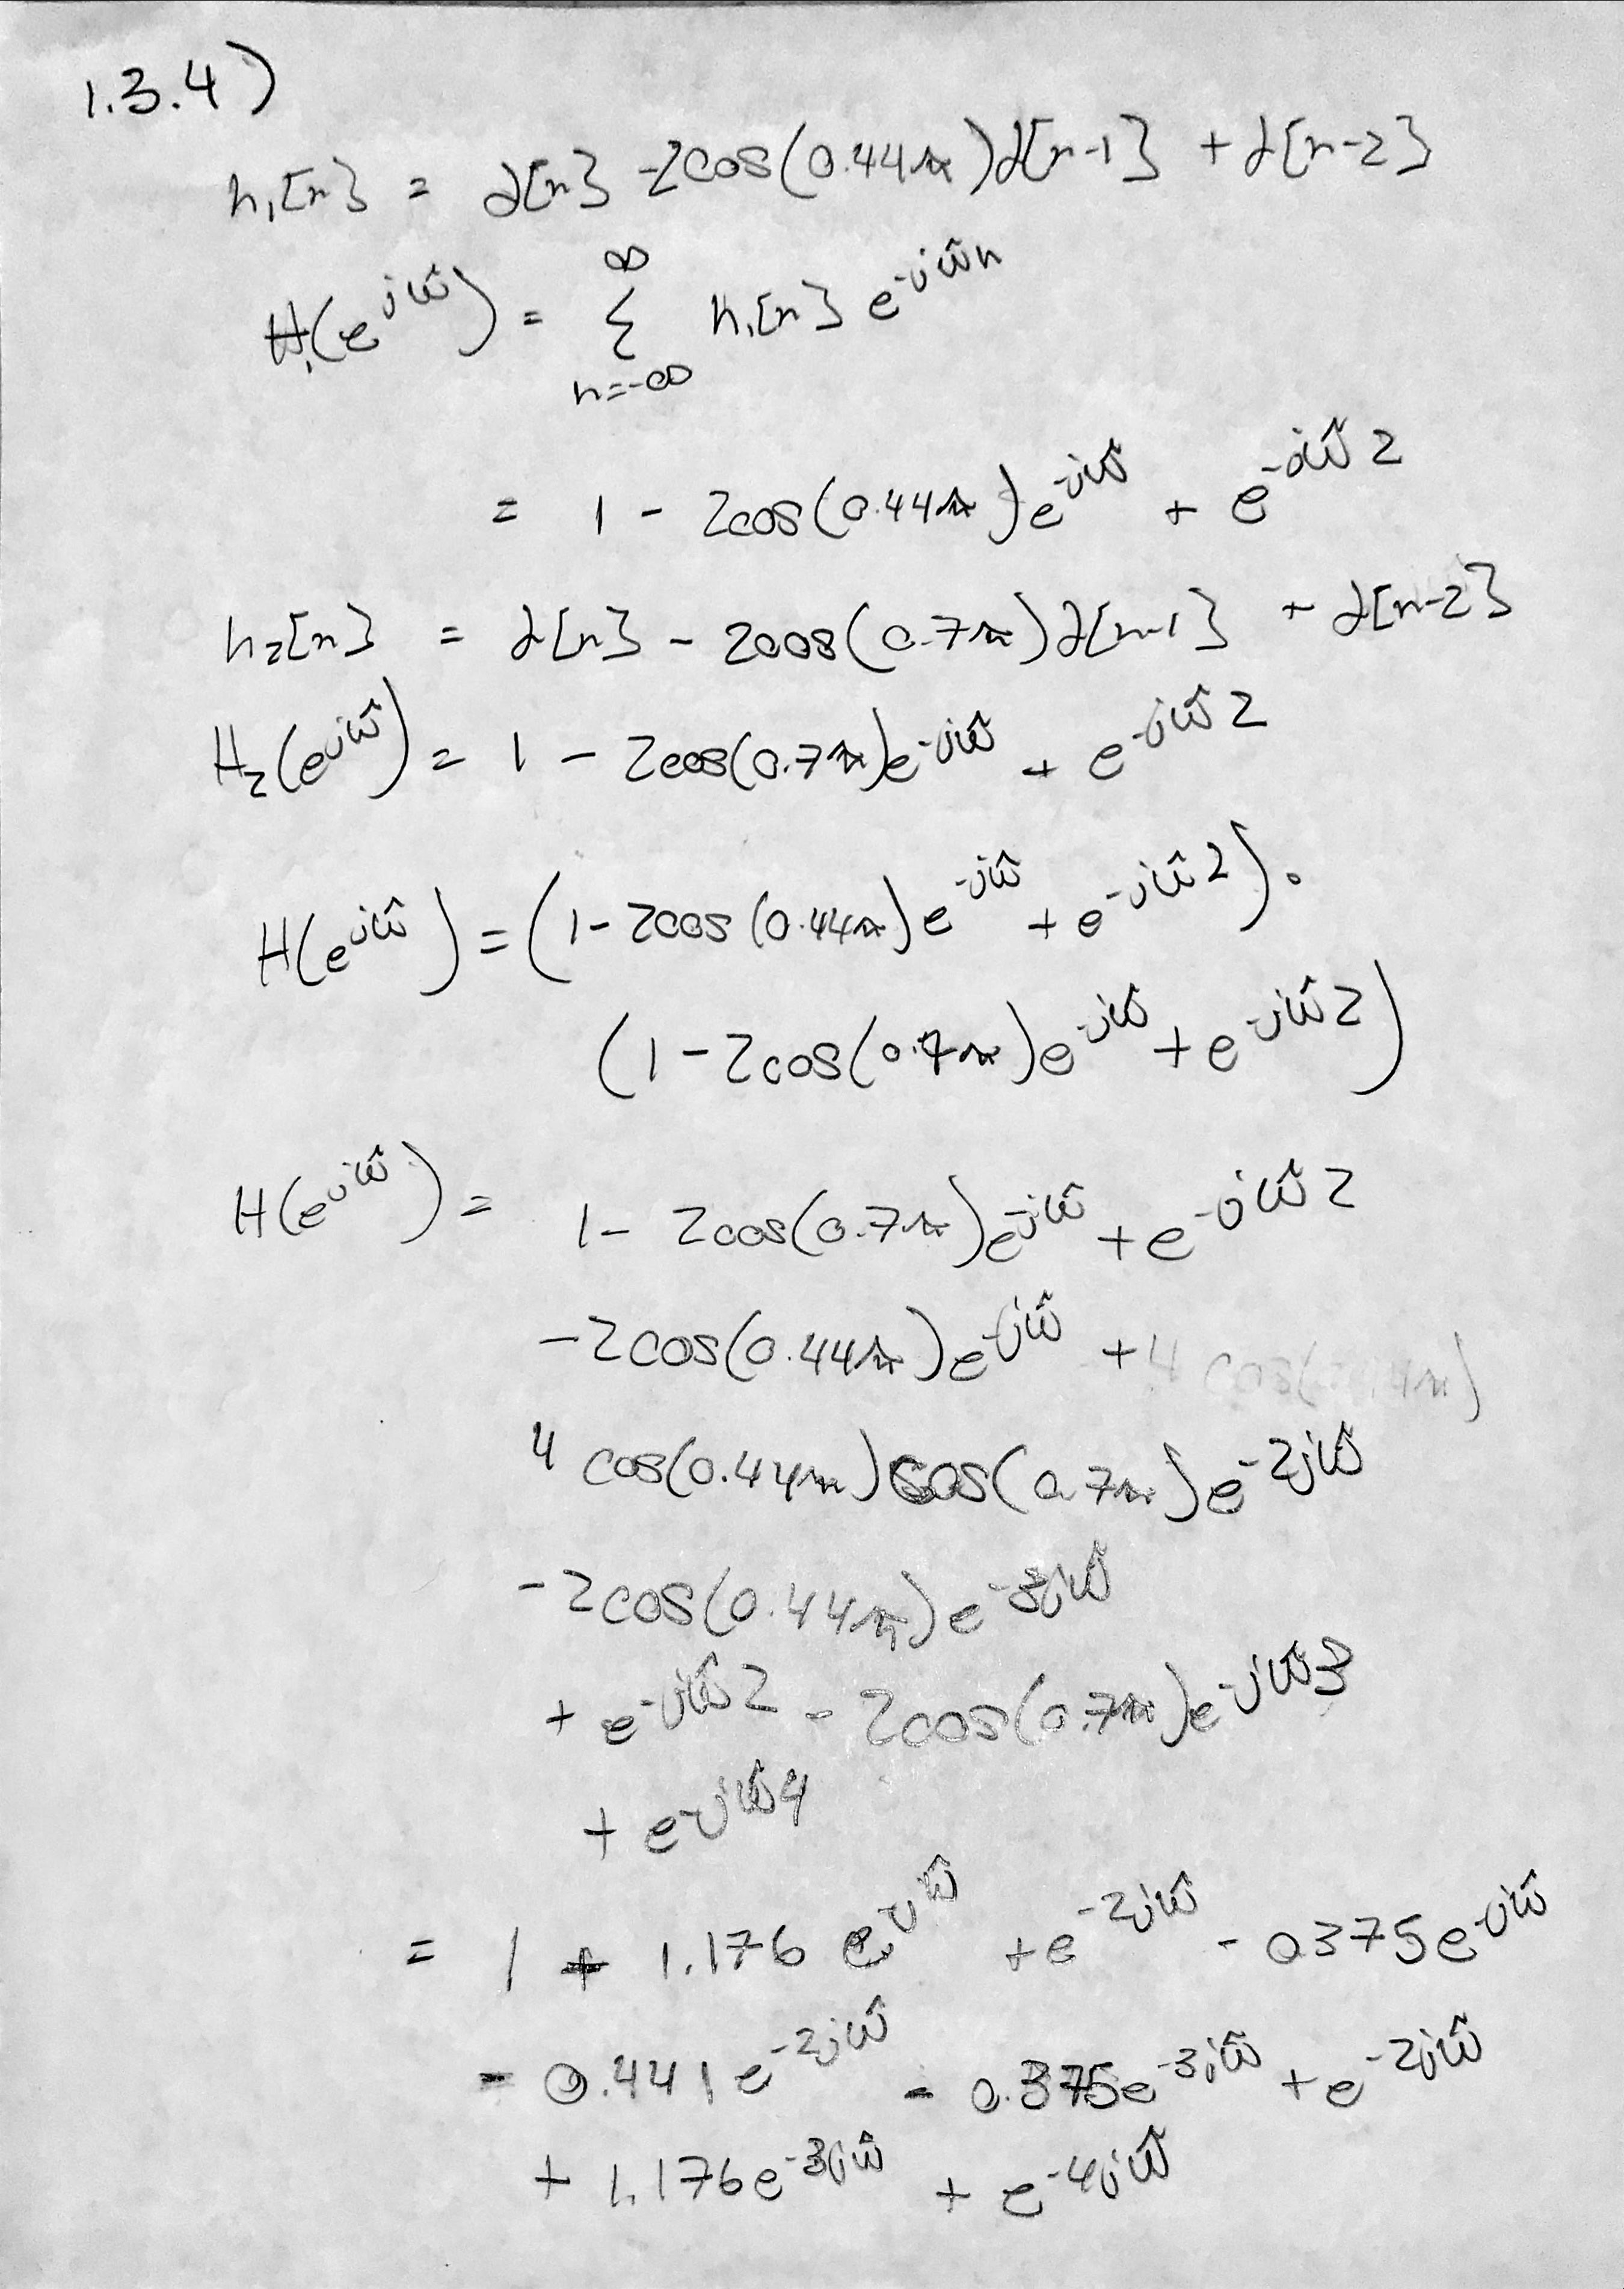 1.3.4)
h₁[n] = δ[n] -2cos(0.44π)δ[n-1] + δ[n-2]
H₁(e^{jω̂}) = ∑_{n=-∞}^{∞} h₁[n] e^{-jω̂n}
= 1 - 2cos(0.44π)e^{-jω̂} + e^{-jω̂2}
h₂[n] = δ[n] - 2cos(0.7π)δ[n-1] + δ[n-2]
H₂(e^{jω̂}) = 1 - 2cos(0.7π)e^{-jω̂} + e^{-jω̂2}
H(e^{jω̂}) = (1-2cos(0.44π)e^{-jω̂} + e^{-jω̂2}).
(1-2cos(0.7π)e^{-jω̂} + e^{-jω̂2})
H(e^{jω̂}) = 1- 2cos(0.7π)e^{-jω̂} + e^{-jω̂2}
-2cos(0.44π)e^{-jω̂} +
4 cos(0.44π)cos(0.7π)e^{-2jω̂}
-2cos(0.44π)e^{-3jω̂}
+ e^{-jω̂2} - 2cos(0.7π)e^{-jω̂3}
+ e^{-jω̂4}
= 1 + 1.176 e^{-jω̂} + e^{-2jω̂} - 0.375e^{-jω̂}
- 0.441e^{-2jω̂} - 0.375e^{-3jω̂} + e^{-2jω̂}
+ 1.176e^{-3jω̂} + e^{-4jω̂}